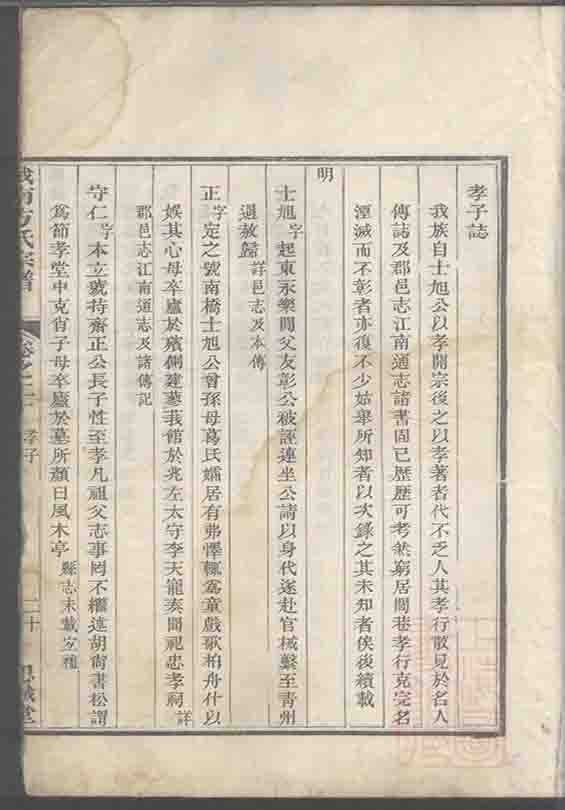 孝子誌
我族自士旭公以孝開宗後之以孝著者代不乏人其孝行散見於名人
傳誌及郡邑志江南通志諸書固已歷歷可考然窮居閭巷孝行克完名
湮滅而不彰者亦復不少姑舉所知者以次錄之其未知者俟後續載
明
士旭字起東永樂間父友彰公被誣連坐公請以身代遂赴官械繫至青州
遇赦歸詳邑志及本傳
正字定之號南橋士旭公曾孫母葛氏孀居有弗懌輒為童戲歌柏舟什以
娛其心母卒廬於殯側建蓼莪館於兆左太守李天寵奏聞祀忠孝祠詳
郡邑志江南通志及諸傳記
守仁字本立號持齋正公長子性至孝凡祖父志事罔不繼述胡尚書松謂
為節孝堂中克肖子母卒廬於墓所顏曰風木亭縣志未載
方氏宗譜
卷之二
孝子
二十
思誠堂